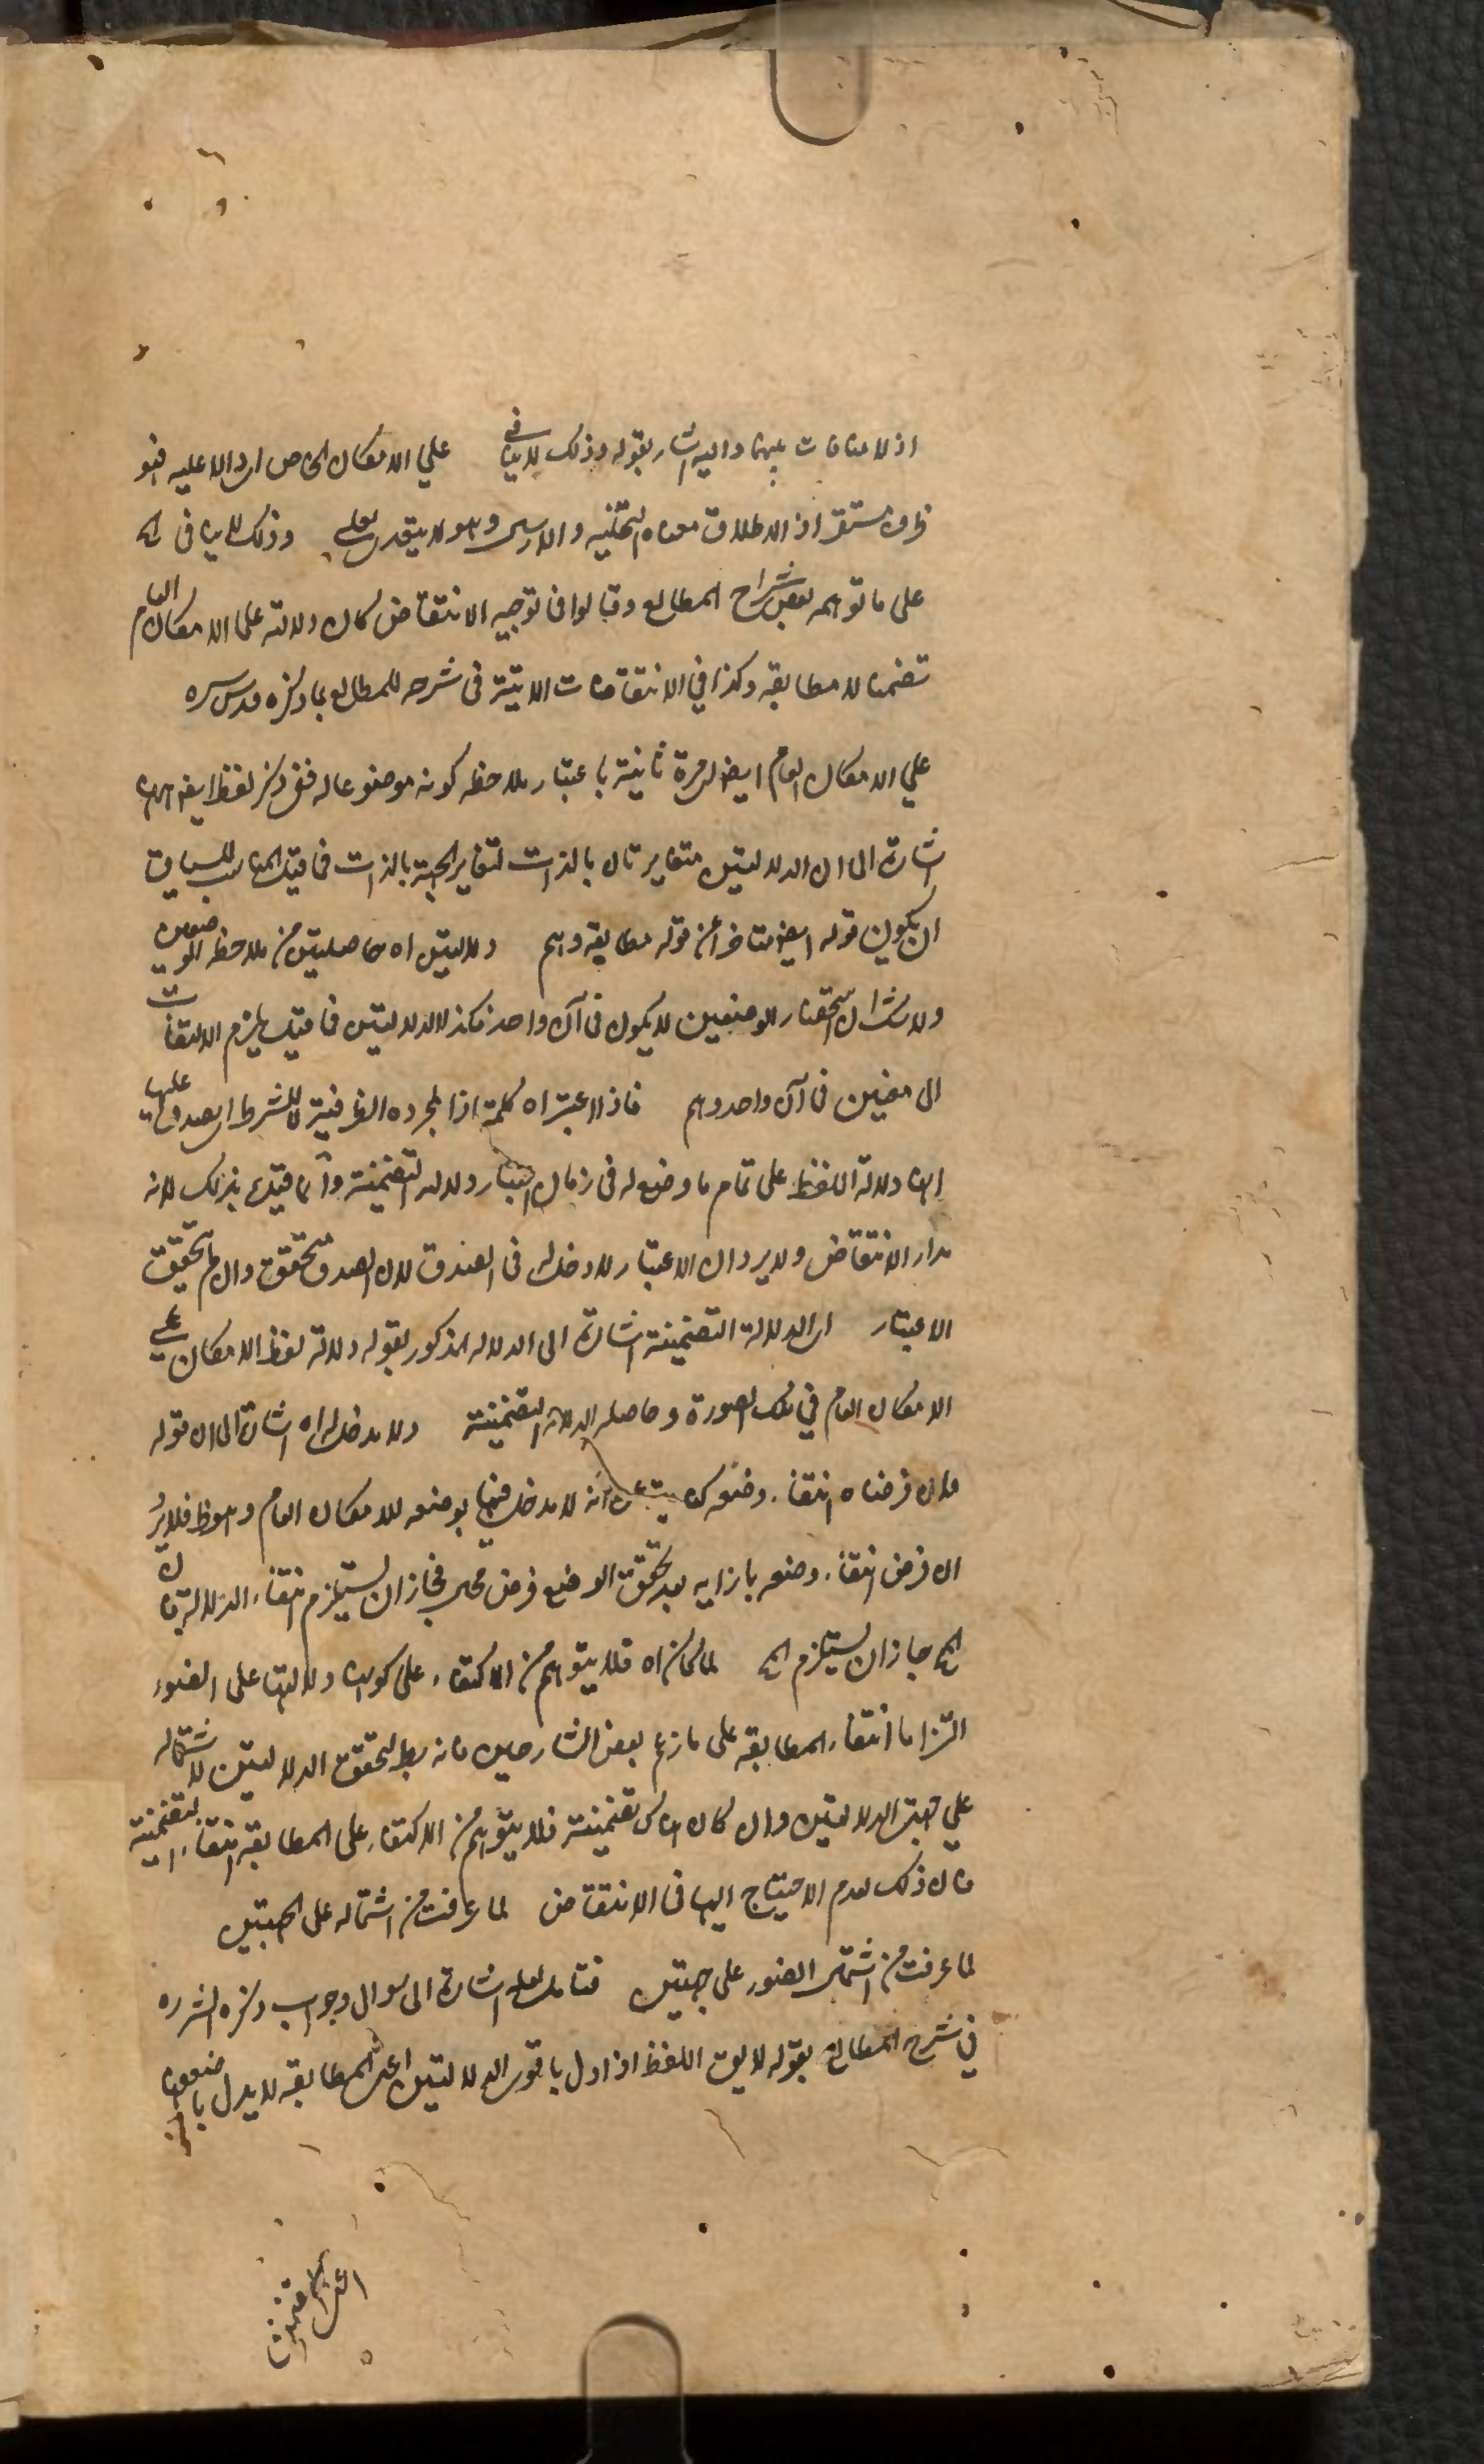 اذ لا منافات بينهما واليه اشار بقوله وذلك لا ينافي على الامكان الخاص اى دالا عليه فهو
ظرف مستقر اذ الاطلاق معناه وهو لا يتعدى بعلى وذلك لا ينافى الخ
على ما توهمه بعض شراح المطالع وقالوا فى توجيه الانتقاض لكان دلالته على الامكان العام
تضمنا لا مطابقة وكذا في الانتقاضات الاتية فى شرحه للمطالع بما ذكره قدس سره
علي الامكان العام ايضا مرة ثانية باعتبار ملاحظة كونه موضوعا له ففى ذكر لفظ ايضا ههنا
اشارة الى ان الدلالتين متغايرتان بالذات لتغاير الجهة بالذات فما قيل المناسب للسياق
ان يكون قوله ايضا متاخرا عن قوله مطابقة وهم دلالتين اه حاصلتين من ملاحظة الوضعين
ولا شك ان استحضار الوضعين لا يكون فى آن واحد فكذا الدلالتين فما قيل يلزم الالتفات
الى معنيين فى آن واحد وهم فاذا اعتبر اه كلمة اذا لمجرد الظرفية لا للشرط اى يصدق عليها
انها دلالة اللفظ على تمام ما وضع له فى زمان اعتبار دلالته التضمنية وانما قيد بذلك لانه
مدار الانتقاض ولا يرد ان الاعتبار لا دخل له فى الصدق لان الصدق متحقق وان لم يتحقق
الاعتبار اى الدلالة التضمنية اشارة الى الدلالة المذكور بقوله دلالة لفظ الامكان على
الامكان العام في تلك الصورة وحاصله الدلالة التضمنية ولا مدخل اه اشارة الى ان قوله
وان فرضنا انتفاء وضعه انه لا مدخل فيها لوضعه للامكان العام وهو ظ فلا يرد
ان فرض انتفاء وضعه بازايه بعد تحقق الوضع فرض محال فجاز ان يستلزم انتفاء الدلالة فان
المح جاز ان يستلزم المح لما كان اه فلا يتوهم من الاكتفاء على كونها دلالتها على الضوء
التزاما انتفاء المطابقة على ما زعم بعض الشارحين فانه بط لتحقق الدلالتين لاشتماله
علي جهتى الدلالتين وان كان هناك تضمنية فلا يتوهم من الاكتفاء على المطابقة انتفاء التضمنية
فان ذلك لعدم الاحتياج اليها فى الانتقاض لما عرفت من اشتماله على الجهتين
لما عرفت من اشتمال الضوء على جهتين فتامل لعله اشارة الى سوال وجواب ذكره الش ره
في شرح المطالع بقوله لا يق اللفظ اذا دل باقوى الدلالتين اعنى المطابقة لا يدل باضعفهما